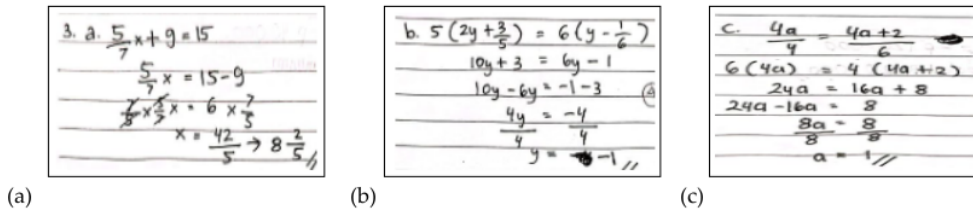 3. a. 5/7 x + 9 = 15
5/7 x = 15 - 9
7/5 x 5/7 x = 6 x 7/5
x = 42/5 → 8 2/5 //
(a)
b. 5 (2y + 3/5) = 6 (y - 1/6)
10y + 3 = 6y - 1
10y - 6y = -1 - 3
4y/4 = -4/4
y = -1 //
(b)
c. 4a/4 = 4a + 2/6
6 (4a) = 4 (4a + 2)
24a = 16a + 8
24a - 16a = 8
8a/8 = 8/8
a = 1 //
(c)